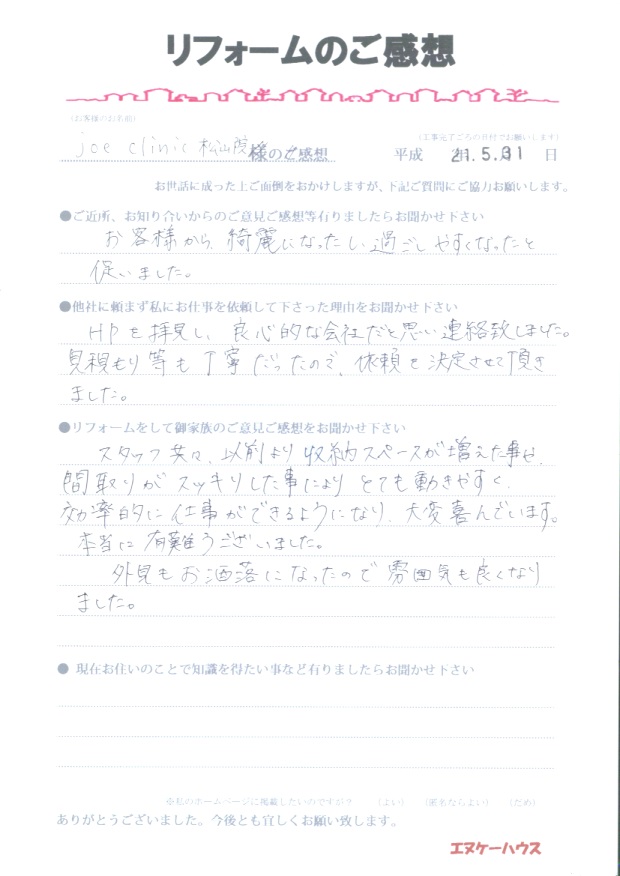 リフォームのご感想
(お客様のお名前)
(工事完了ごろの日付でお願いします)
joe clinic 松山院 様のご感想 平成 21.5.31 日
お世話に成った上ご面倒をおかけしますが、下記ご質問にご協力お願いします。
●ご近所、お知り合いからのご意見ご感想等有りましたらお聞かせ下さい
お客様から、綺麗になったし過ごしやすくなったと
ました。
●他社に頼まず私にお仕事を依頼して下さった理由をお聞かせ下さい
HPを拝見し、良心的な会社だと思い連絡致しました。
見積もり等も丁寧だったので、依頼を決定させて頂き
ました。
●リフォームをして御家族のご意見ご感想をお聞かせ下さい
スタッフ共々、以前より収納スペースが増えた事や、
間取りがスッキリした事により とても動きやすく、
効率的に仕事ができるようになり、大変喜んでいます。
本当に有難うございました。
外見もお洒落になったので雰囲気も良くなり
ました。
● 現在お住いのことで知識を得たい事など有りましたらお聞かせ下さい
※私のホームページに掲載したいのですが? (よい) (匿名ならよい) (だめ)
ありがとうございました。今後とも宜しくお願い致します。
エヌケーハウス